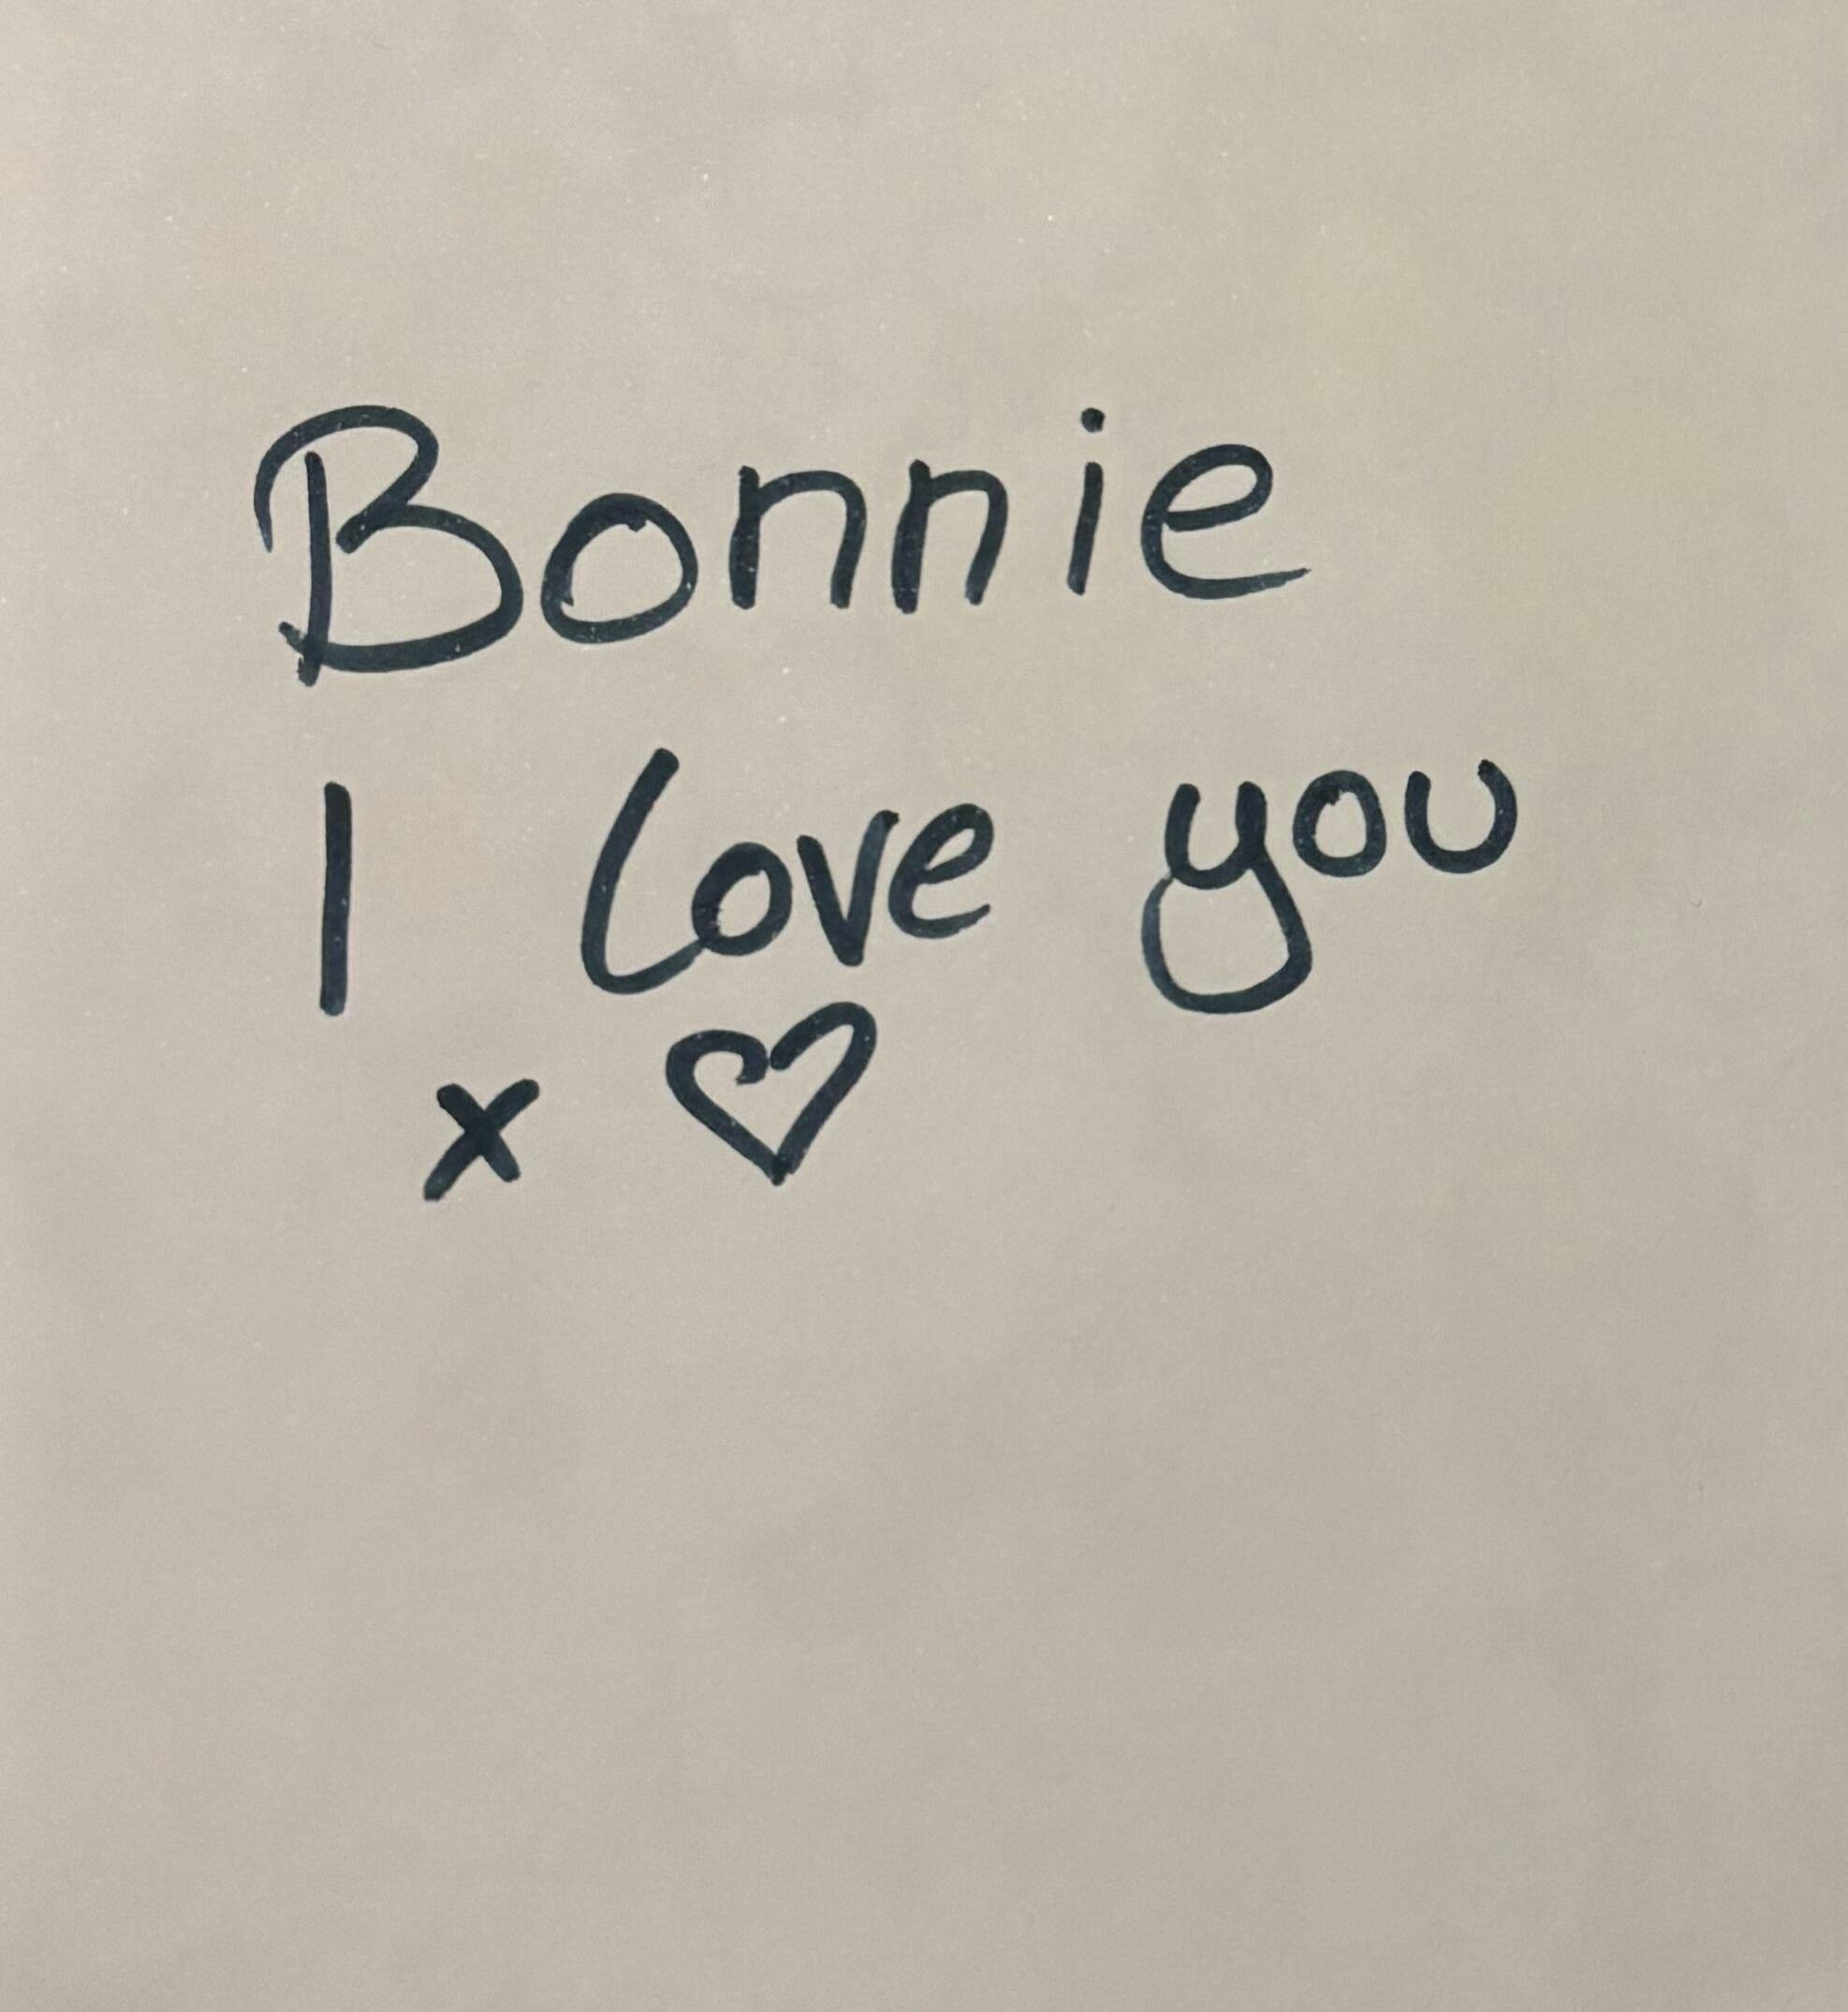 Bonnie
I love you
x ♡